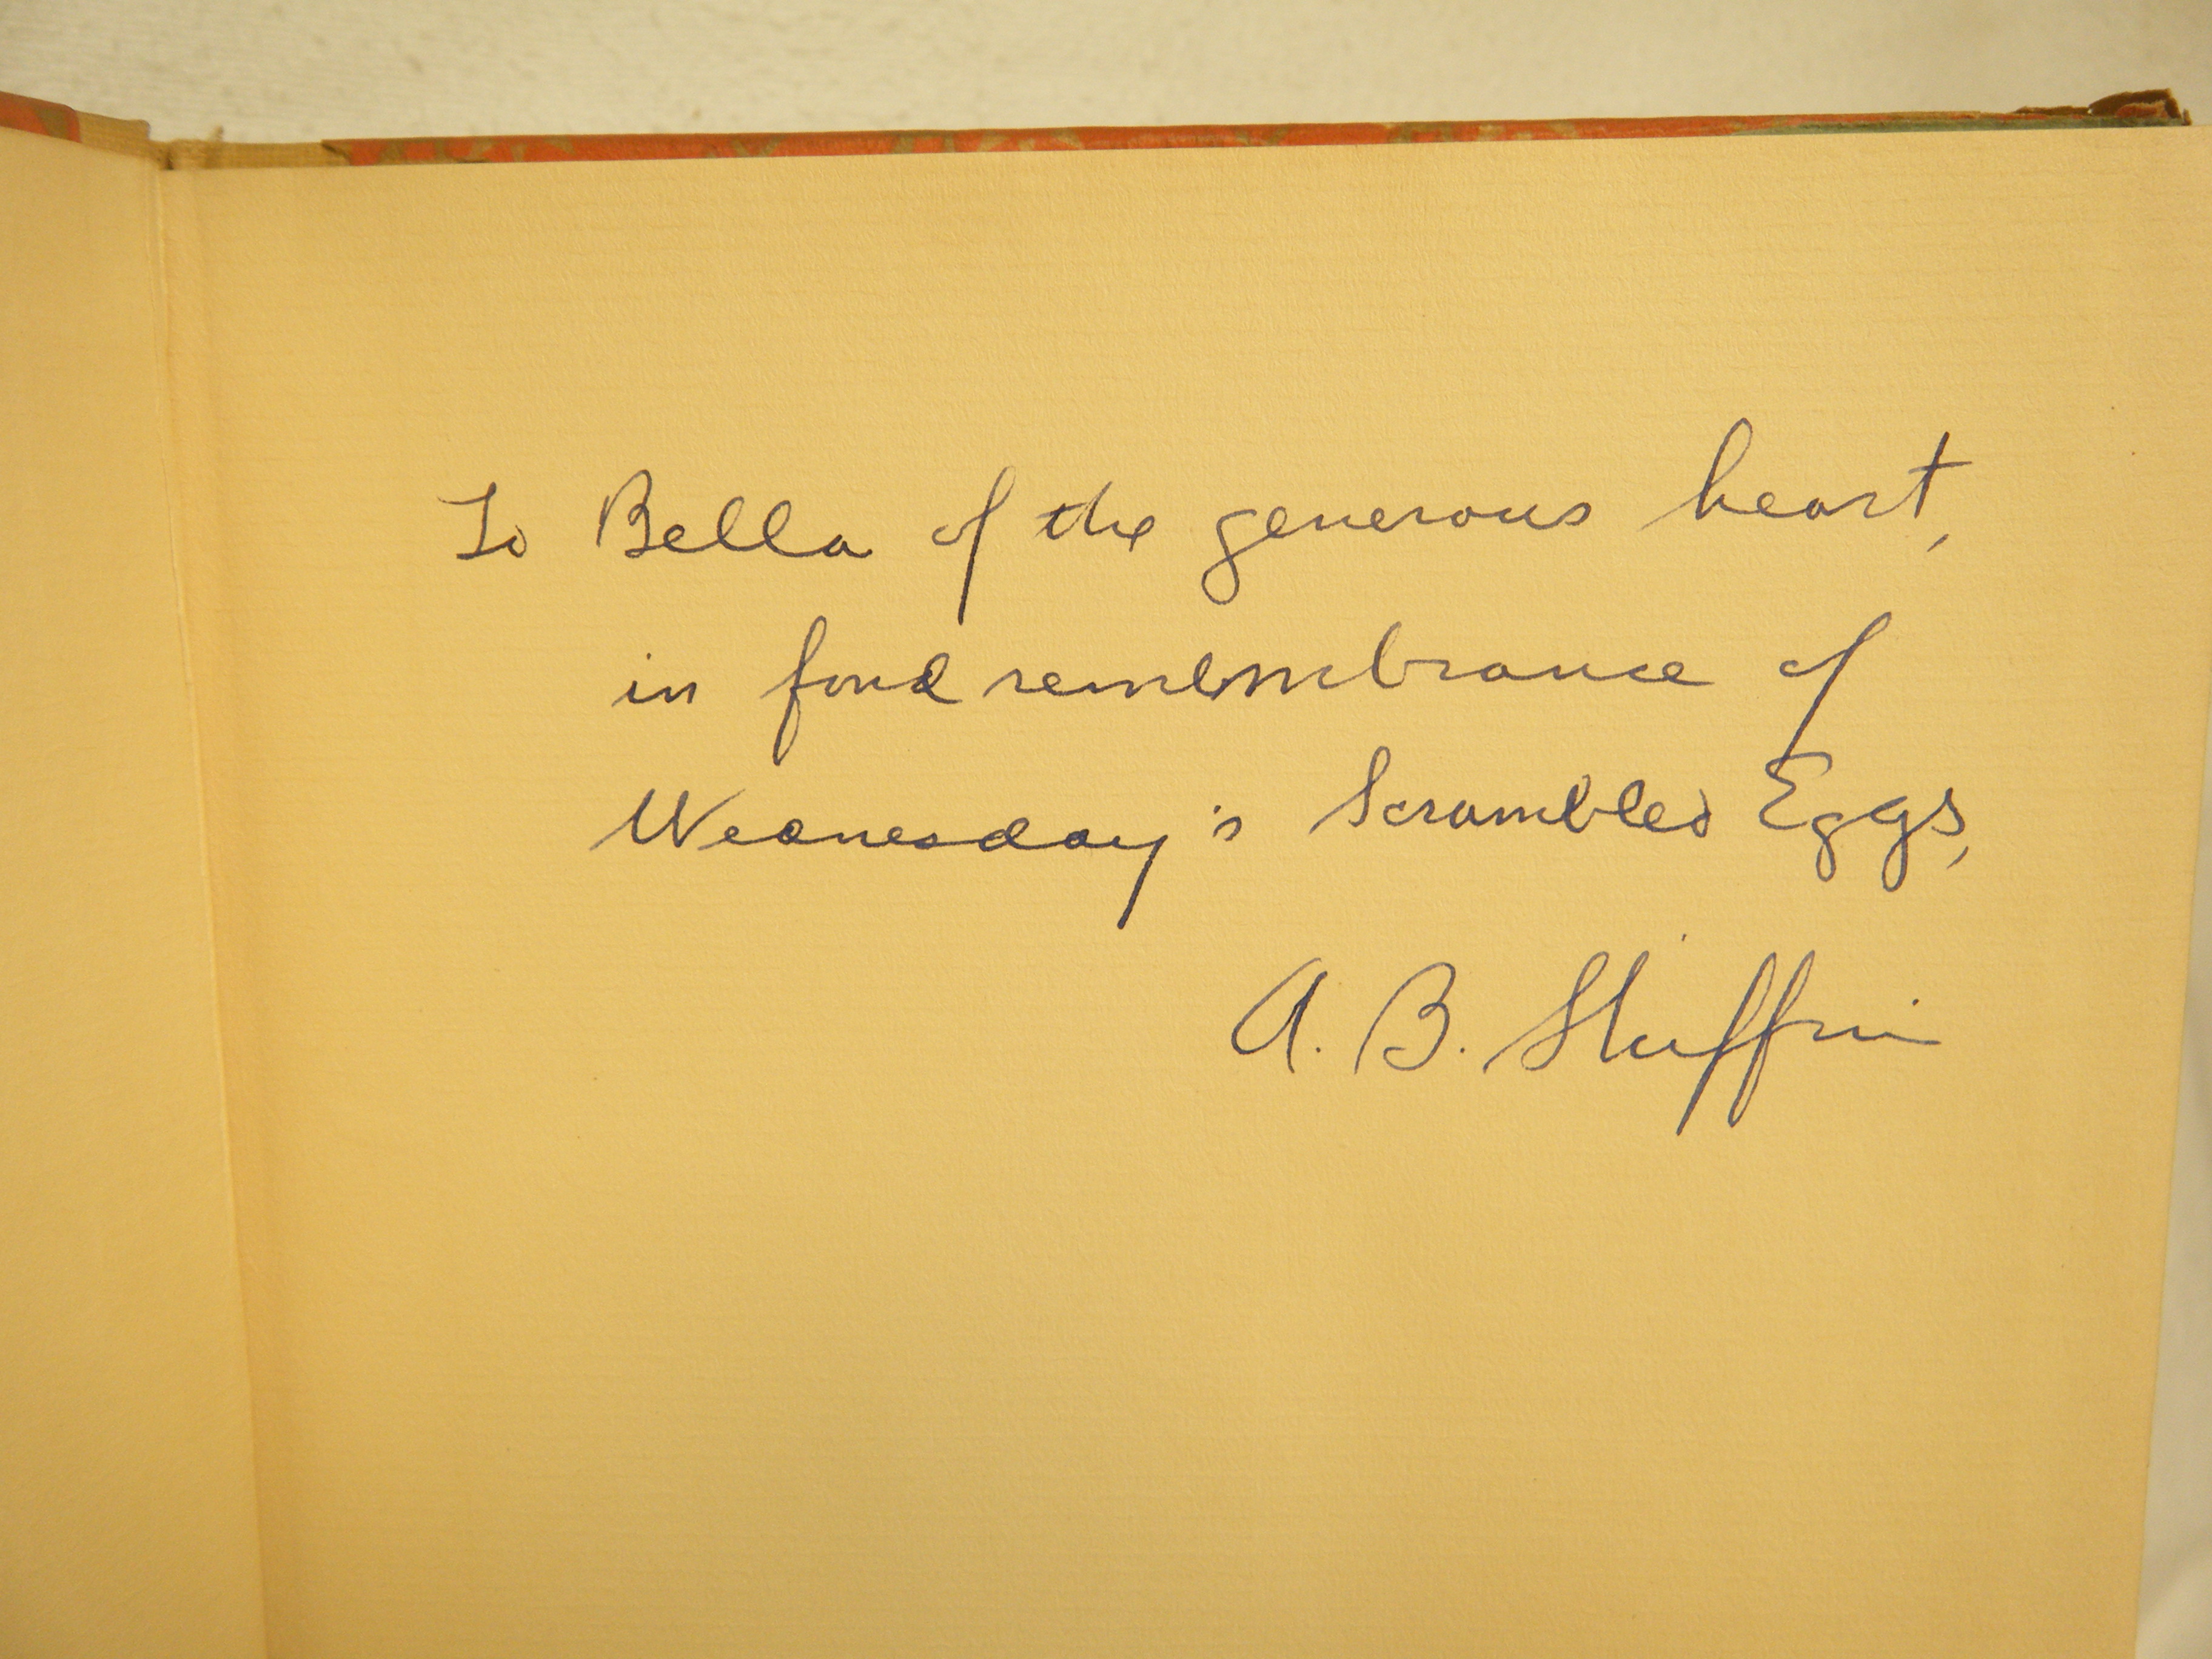 To Bella of the generous heart,
in fond remembrance of
Wednesday's Scrambled Eggs,
A. B. Shiffrin